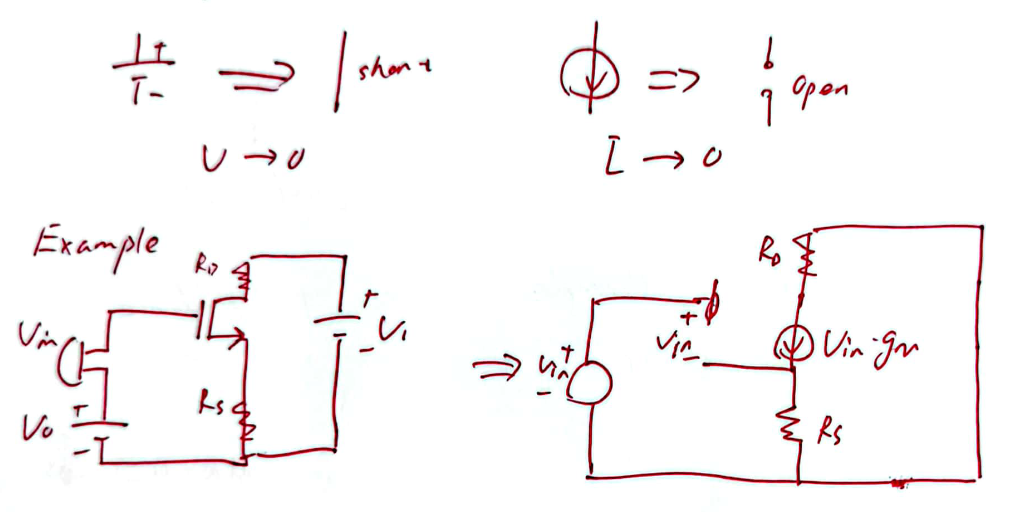 +
-
⇒
short
⇒
open
V → 0
I → 0
Example
RD
+
-
V1
Vin
RS
+
-
V0
⇒
Vin
+
-
+
Vin
-
RD
Vin·gm
RS